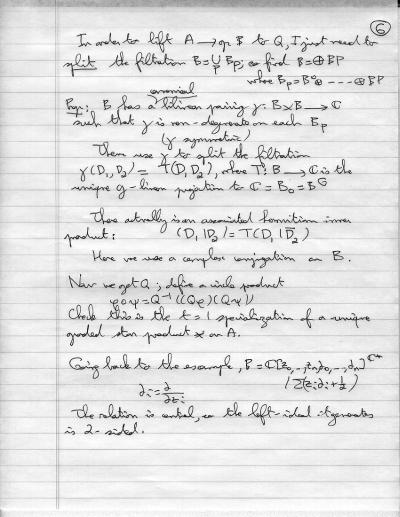 6
In order to lift A → gr B to Q, I just need to
split the filtration B = ∪_p B_p; so find B = ⊕ B^p
where B_p = B^0 ⊕ --- ⊕ B^p
canonical
Prop: B has a bilinear pairing γ: B×B → ℂ
such that γ is non-degenerate on each B_p
(γ symmetric)
Then use γ to split the filtration
γ(D_1, D_2) = T(D_1 D_2), where T: B → ℂ is the
unique g-linear projection to ℂ = B_0 = B^G
There actually is an associated hermitian inner
product: (D_1 | D_2) = T(D_1 | D̄_2)
Here we use a complex conjugation on B.
Now we get Q; define a circle product
φ∘ψ = Q^{-1}((Qφ)(Qψ))
Check this is the t=1 specialization of a unique
graded star product * on A.
Going back to the example, B = ℂ[z_0, -, z_n, ∂_0, -, ∂_n]^{ℂ*}
∂_i = ∂/∂z_i / Σ(z_i ∂_i + 1/2)
The relation is central, so the left-ideal it generates
is 2-sided.